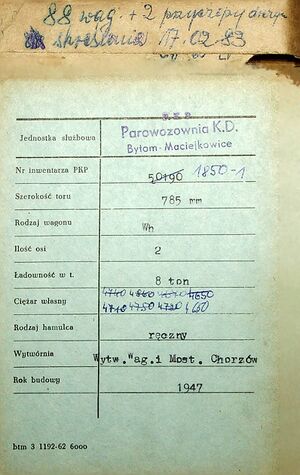 88 wag. + 2 przyczepy
skreślenia 17.02.83
P.K.P.
Jednostka służbowa Parowozownia K.D.
Bytom-Maciejkowice
Nr inwentarza PKP 50190 1850-1
Szerokość toru 785 mm
Rodzaj wagonu Wb
Ilość osi 2
Ładowność w t. 8 ton
4740 4860 4650
Ciężar własny 4710 4750 4730
Rodzaj hamulca ręczny
Wytwórnia Wytw.Wag.i Most. Chorzów
Rok budowy 1947
btm 3 1192-62 6000